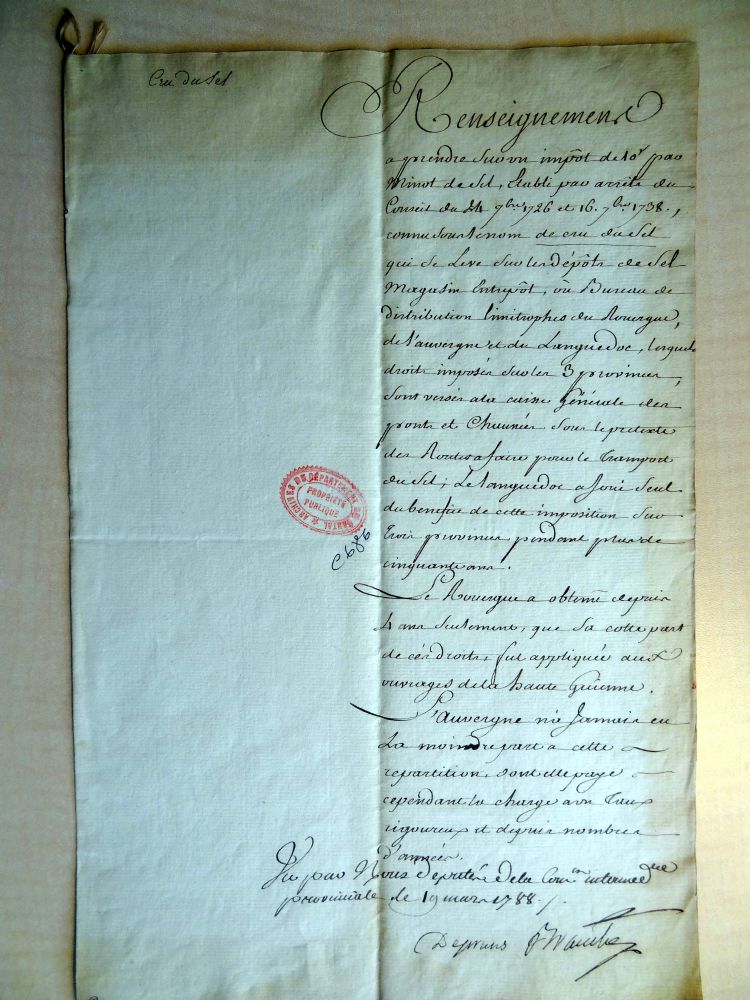 Cru du Sel
Renseignement
a prendre sur un impôt de 10s par
Minot de Sel, Etabli par arrêts du
Conseil du 24 7bre 1726 et 16. 7bre 1738.,
connu sous le nom de cru du Sel
qui se Leve sur les Dépôts de Sel
Magasin Entrepôt, ou Bureau de
distribution limitrophes du Rouergue,
de l'auvergne et du Languedoc, lesquels
droits imposés sur les 3 provinces,
sont versés a la caisse générale des
ponts et Chaussées sous le prétexte
des Routes a faire pour le transport
du Sel; Le Languedoc a Joui seul
du benefice de cette imposition sur
trois provinces pendant plus de
cinquante ans.
Le Rouergue a obtenu depuis
4 ans seulement, que sa cotte part
de ces droits, fut appliquée aux
ouvrages de la haute Guienne.
L'auvergne n'a Jamais eu
La moindre part a cette
repartition, dont elle paye
cependant la charge a un taux
rigoureux et depuis nombres
d'années.
Vu par Nous députés de la Comon intermedre
provinciale le 19 mars 1788 /.
ARCHIVES DU DÉPARTEMENT DU CANTAL
PROPRIÉTÉ
PUBLIQUE
C686